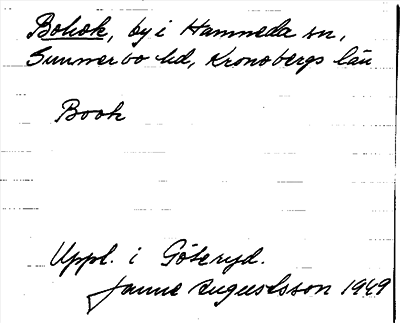 Bohok, by i Hamneda sn,
Sunnerbo hd, Kronobergs län
Book
Uppl. i Göteryd.
Janne Augustsson 1949